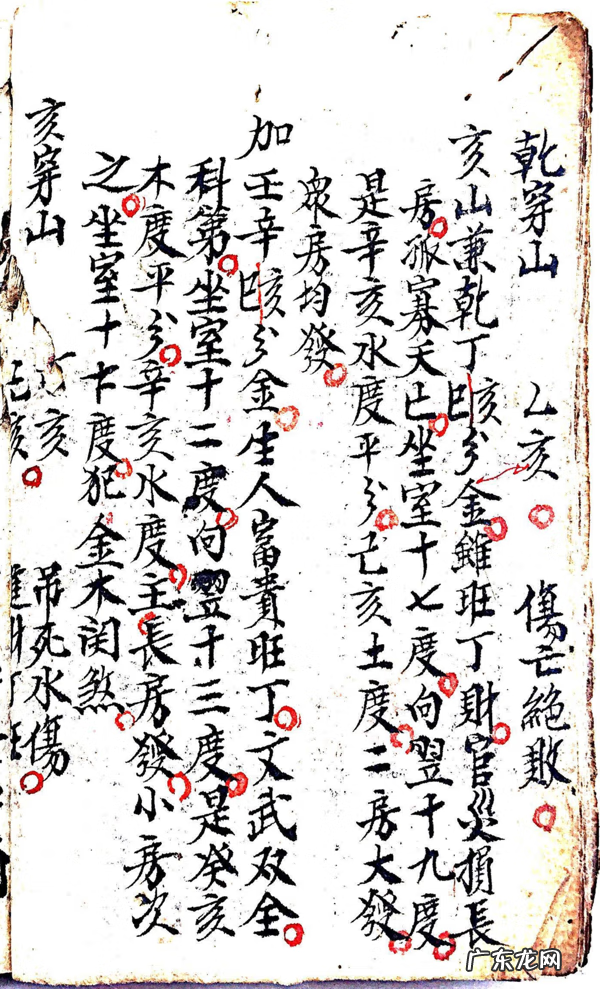 乾穿山 乙亥 傷亡絶敗
亥山兼乾丁巳亥分金雖旺丁財官災損長
房孤寡夭亡坐室十七度向翌十九度
是辛亥水度平分己亥土度二房大發
眾房均發
加壬辛巳亥分金生人富貴旺丁文武双全
科第坐室十二度向翌十三度是癸亥
木度平分辛亥水度主長房發小房次
之坐室十七度犯金木鬪煞
亥穿山 亥 吊死水傷
亥
广东龙网